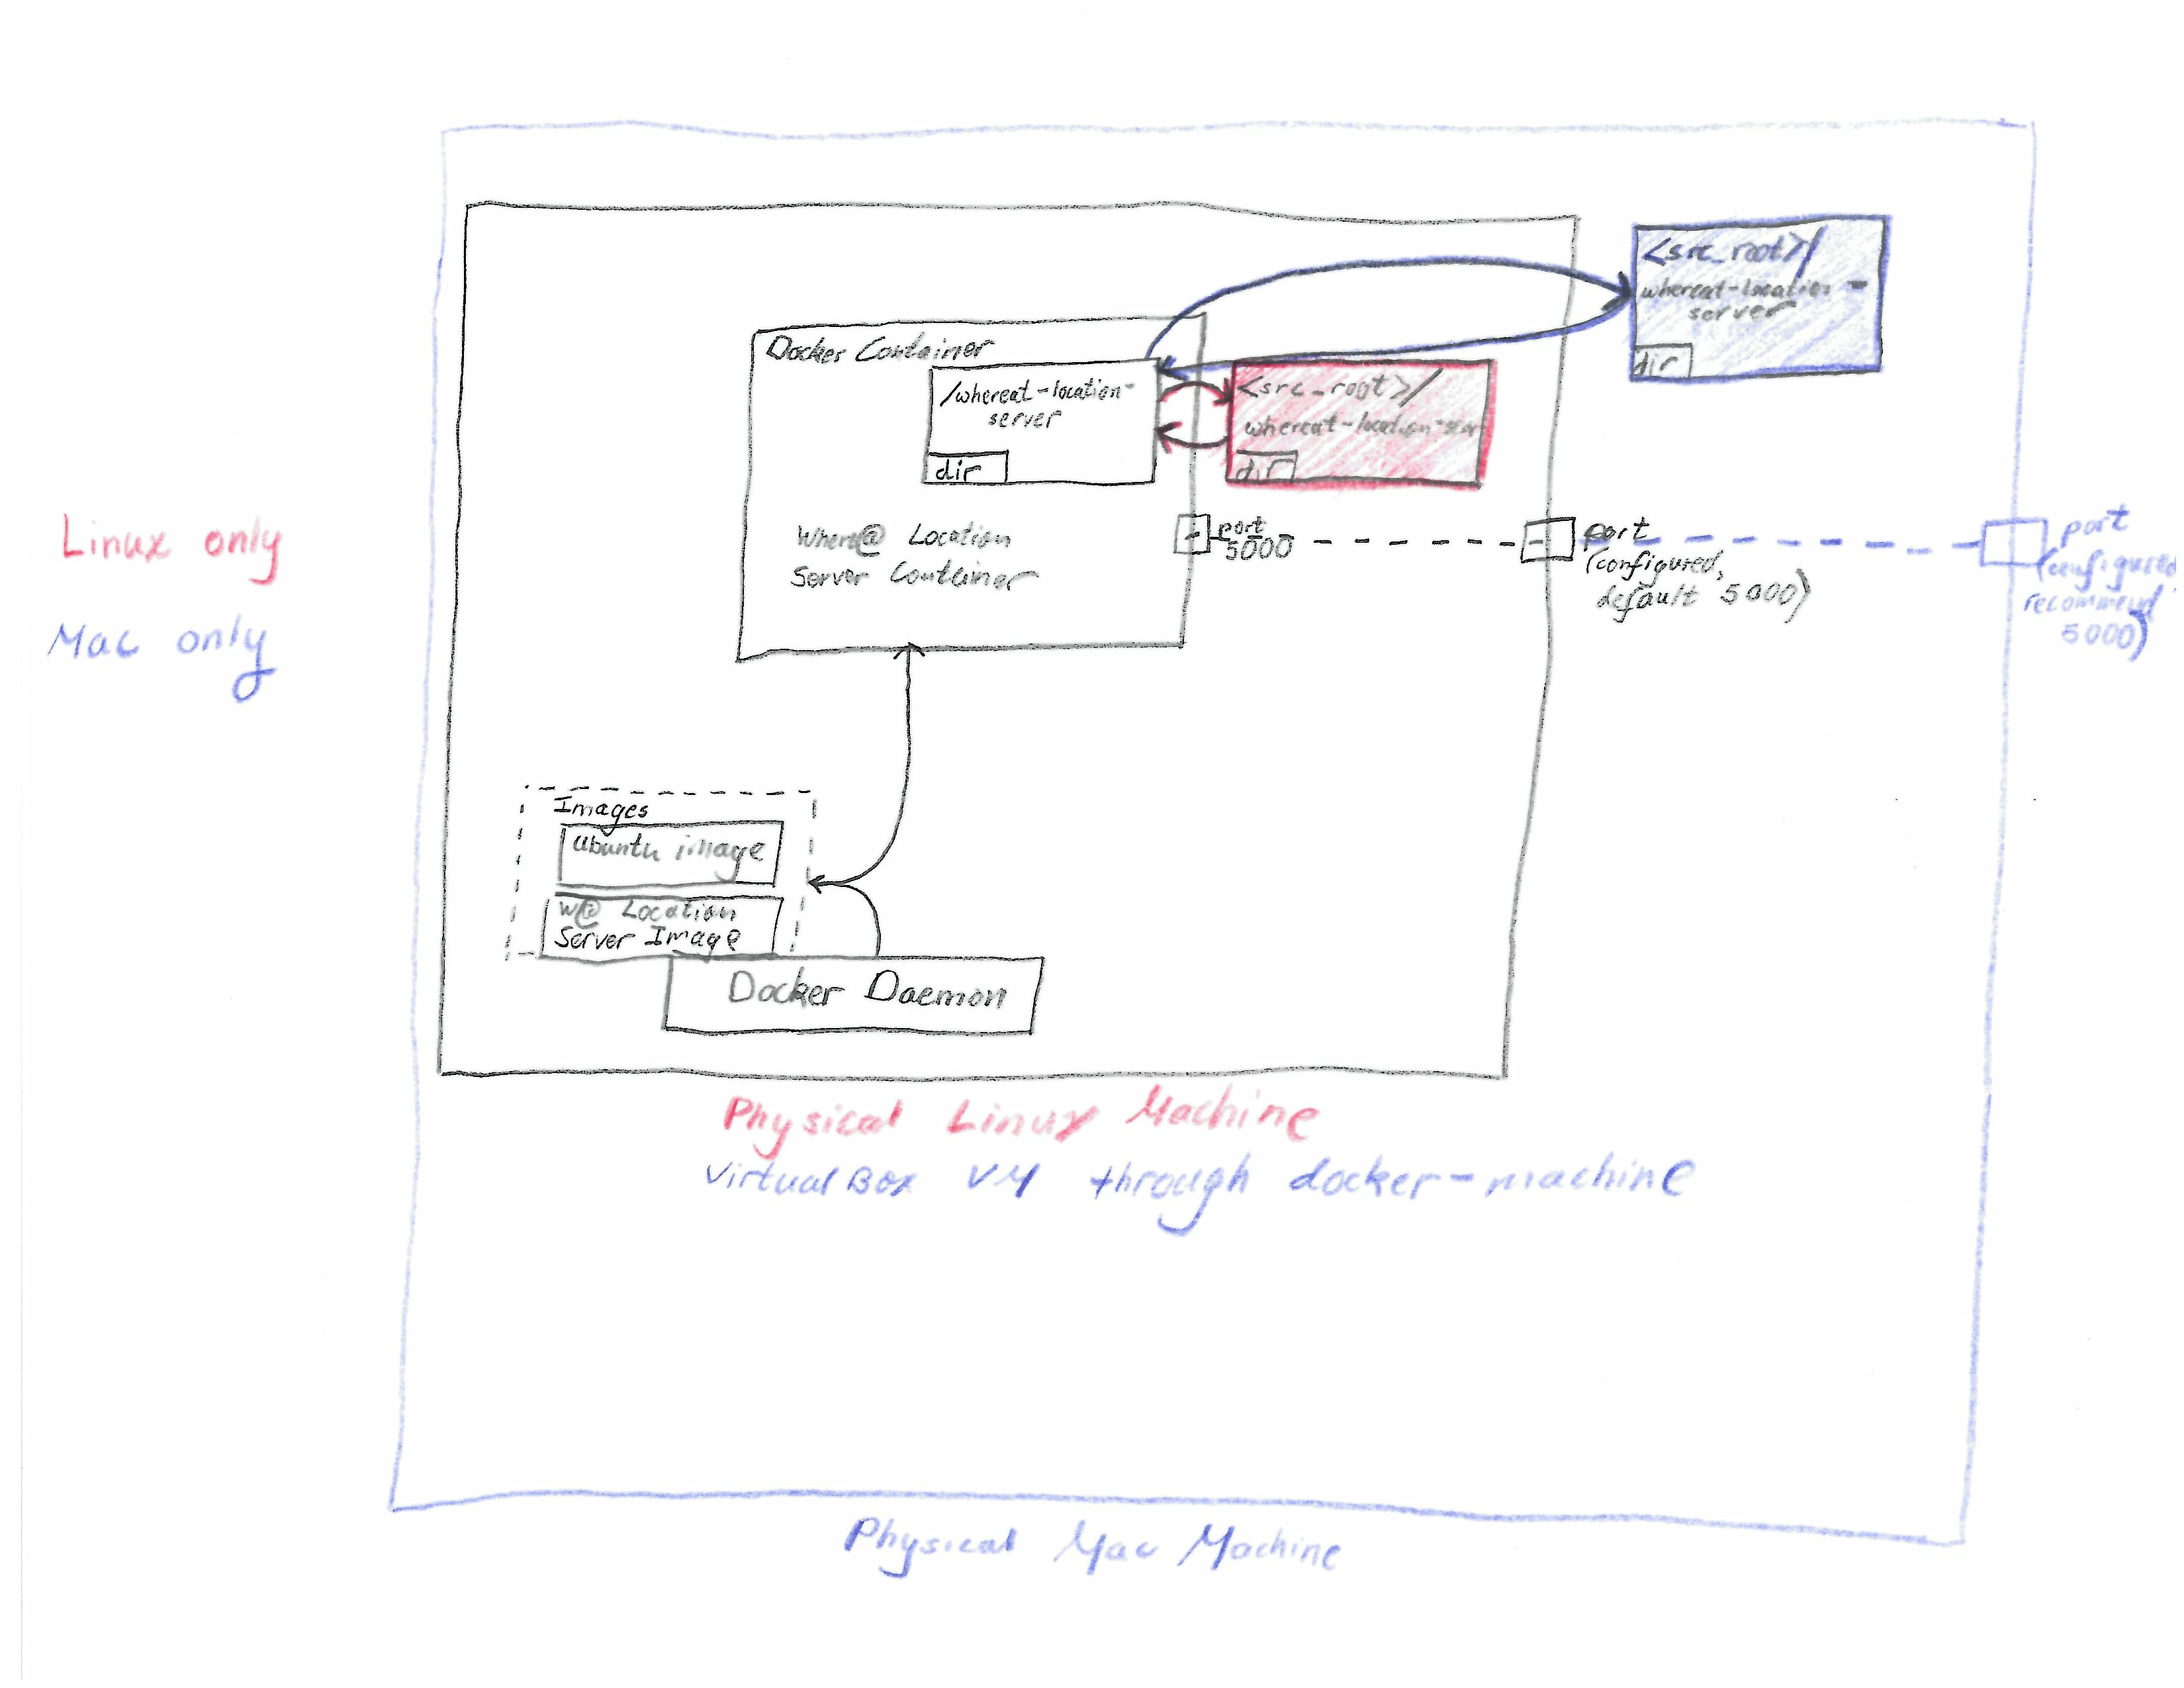 <src_root>/
whereat-location-
server
dir
Docker Container
/whereat-location-
server
dir
<src_root>/
whereat-location-ser
dir
Where@ Location
Server Container
port
5000
port
(configured,
default 5000)
port
(configured,
recommend
5000)
Linux only
Mac only
Images
Ubuntu image
W@ Location
Server Image
Docker Daemon
Physical Linux Machine
VirtualBox VM through docker-machine
Physical Mac Machine